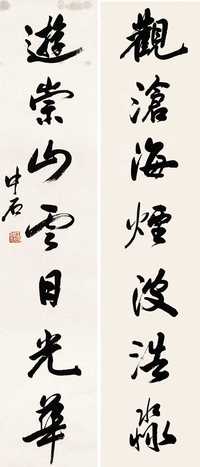 觀滄海煙波浩淼
遊崇山雲日光華
中石